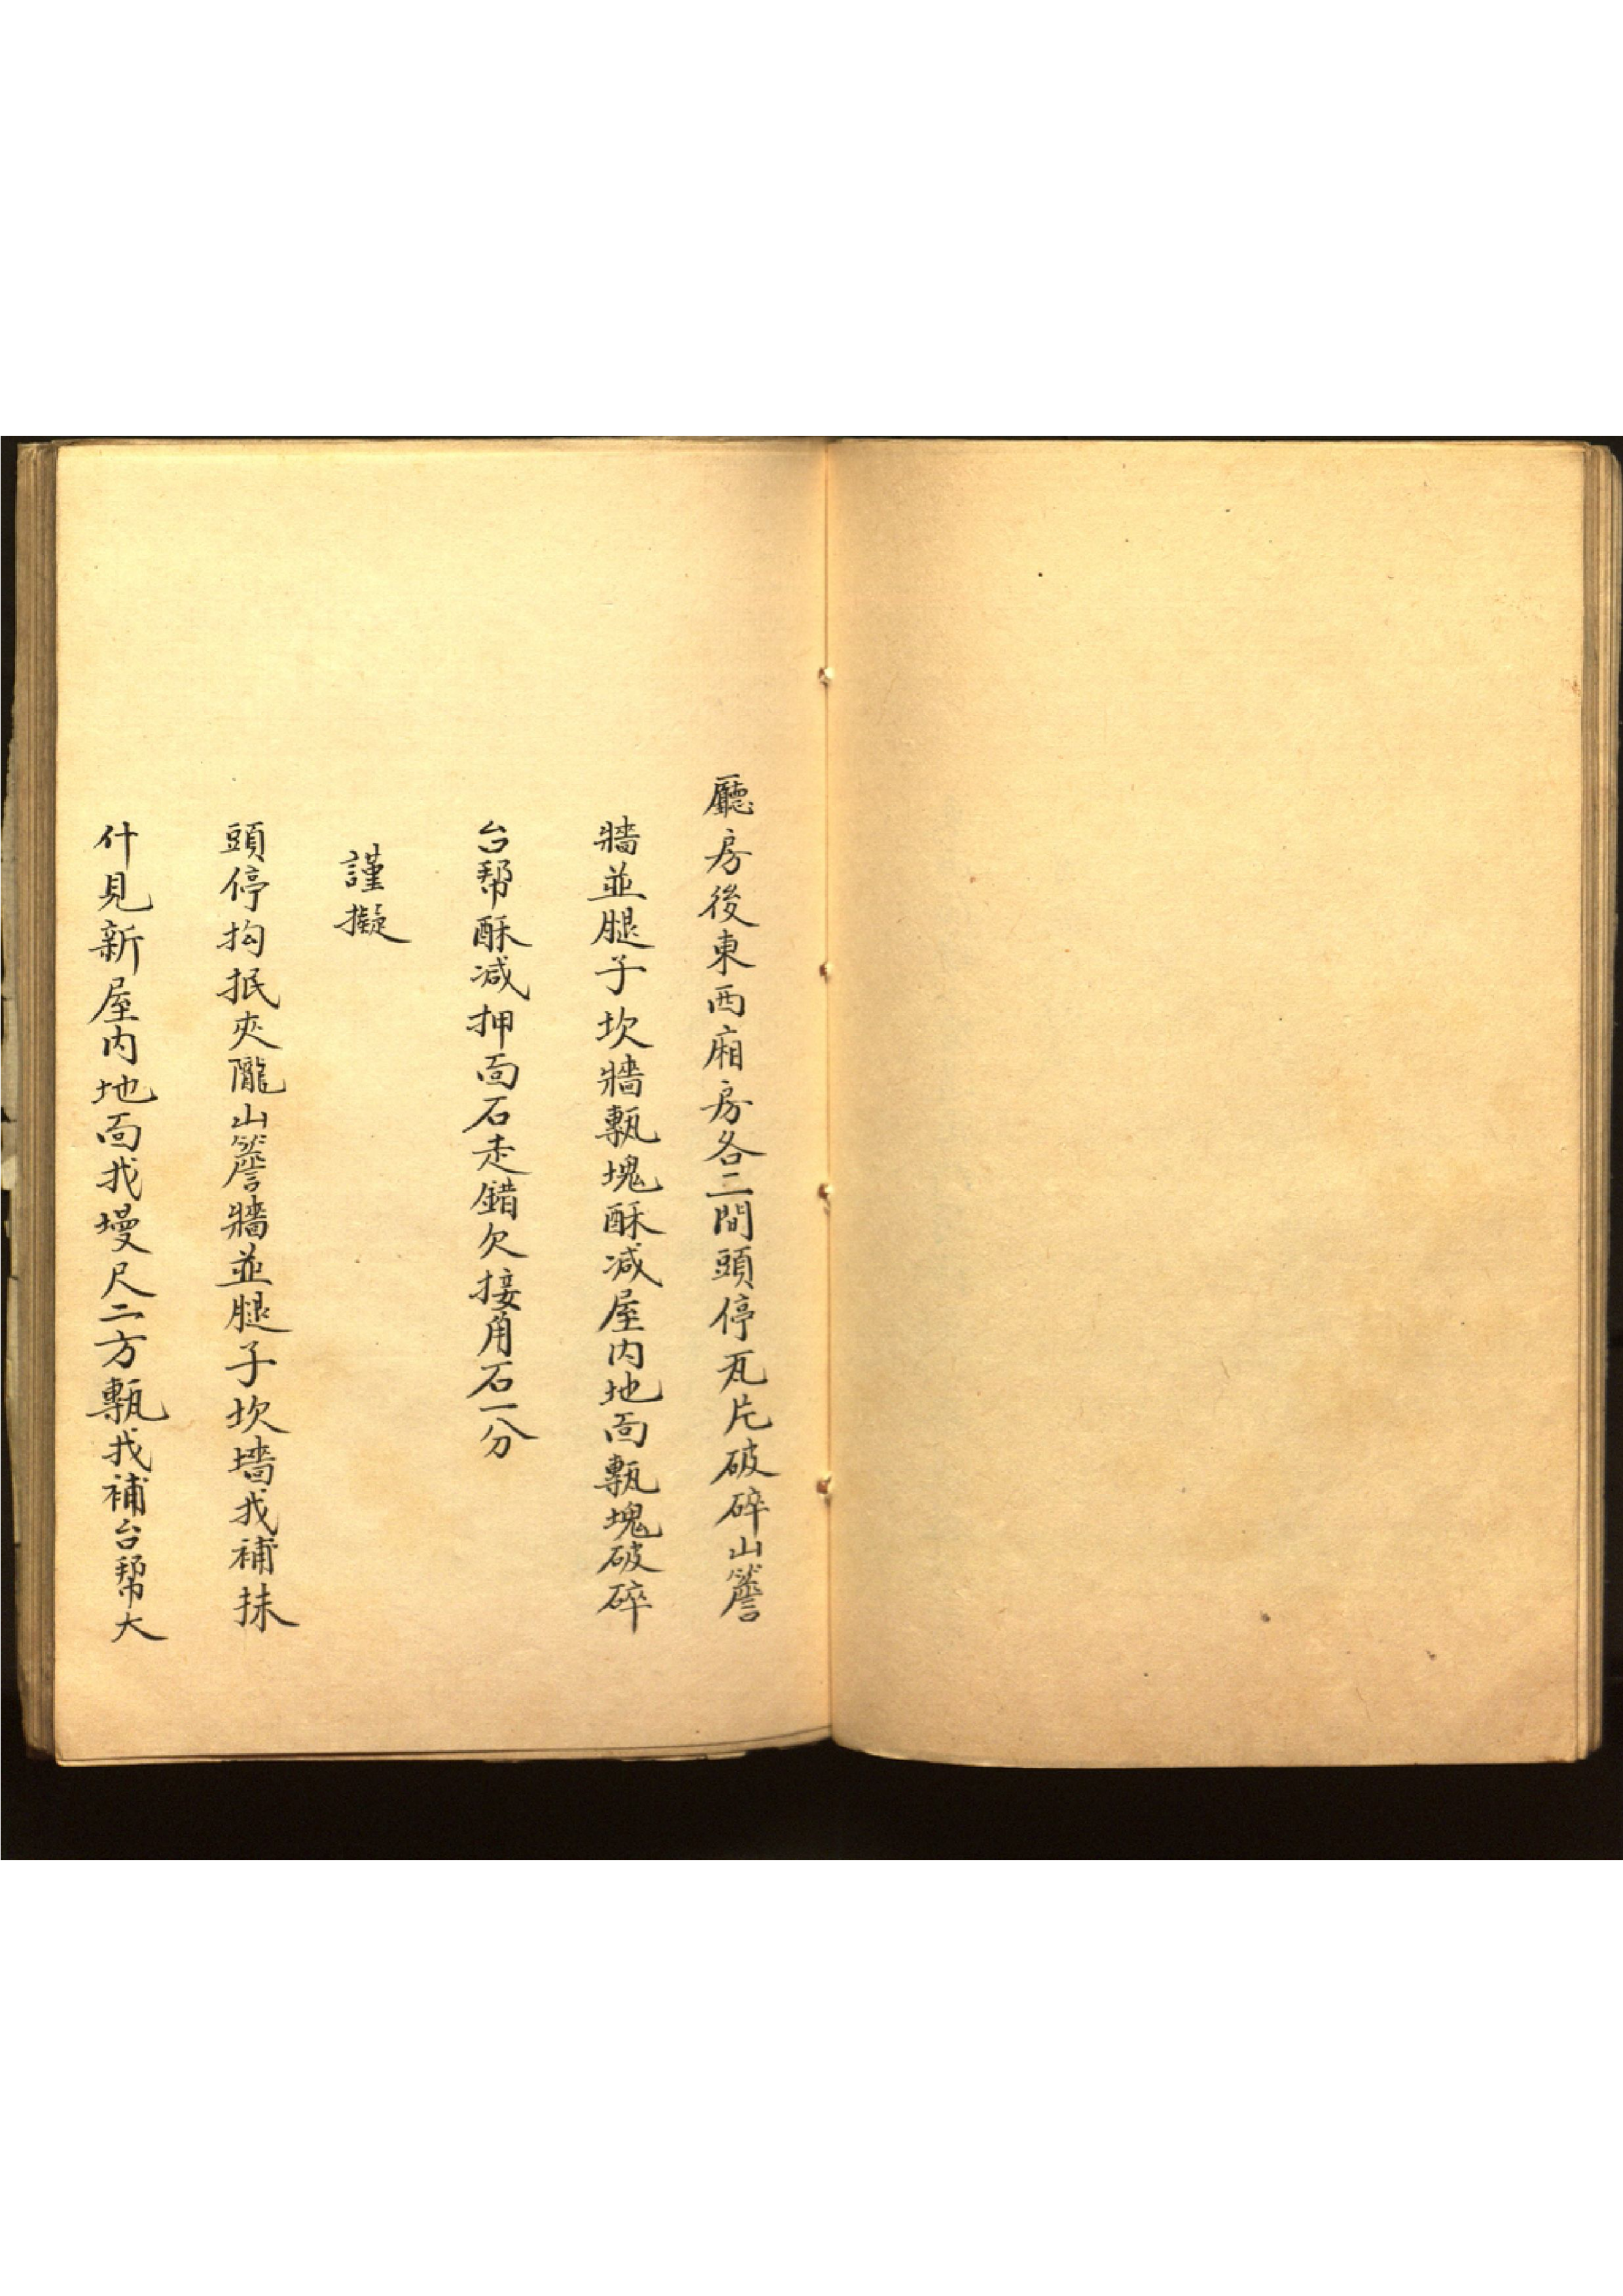 廳房後東西廂房各二間頭停瓦片破碎山簷
牆並腿子坎牆甎塊酥减屋内地面甎塊破碎
台幫酥减押面石走錯欠接角石一分
謹擬
頭停抅抿夾隴山簷牆並腿子坎墻找補抹
什見新屋内地面找墁尺二方甎找補台幫大